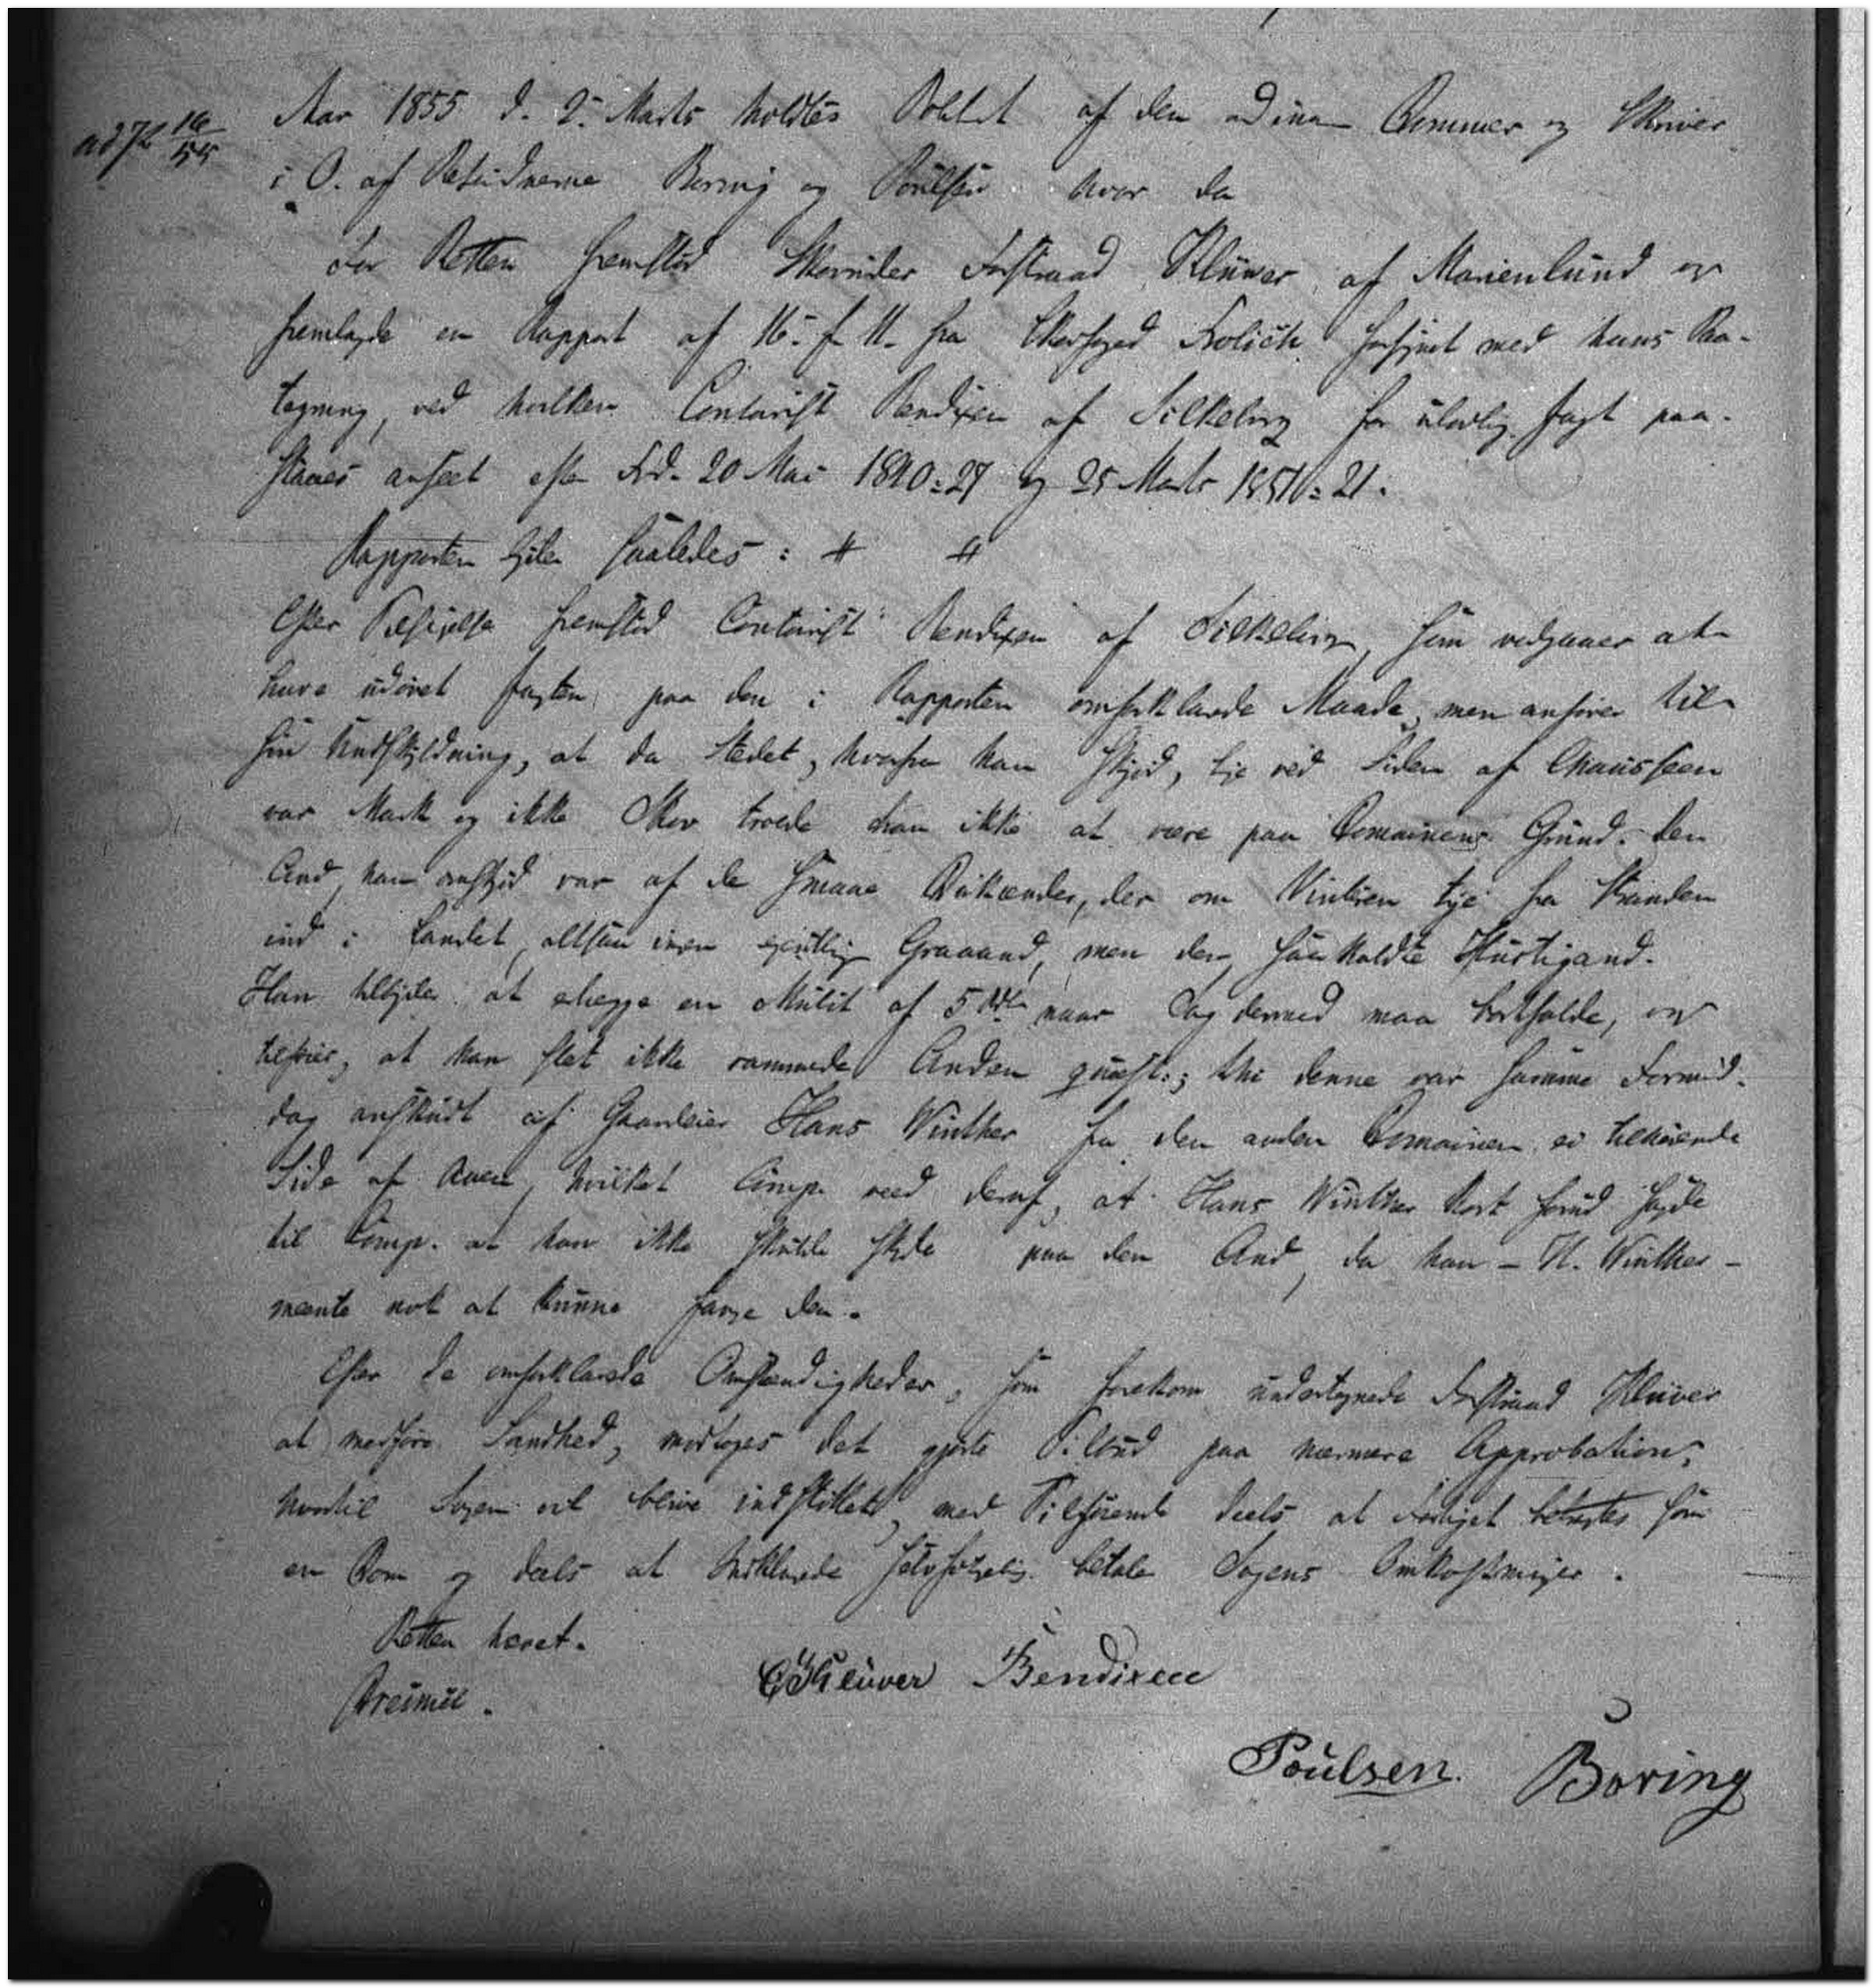 Aar 1855 d. 2. Marts holdtes Politiret af den ordinaire Dommer og Skriver
i O. af Retsvidnerne Boring og Poulsen hvor da
for Retten fremstod Skovrider Forstraad Klüwer af Marienlund og
fremlagde en Rapport af 16. f. M. fra Skovfoged Frolich forsynet med hans Paa-
tegning, ved hvilken Contoirist Bendixen af Silkeborg for ulovlig Jagt paa-
staaes anseet efter Frd. 20 Mai 1840 27 og 25 Marts 1851 21.
Rapporten lyder saaledes: # #
Efter Tilsigelse fremstod Contoirist Bendixen af Silkeborg, som vedgaaer at
have udøvet Jagten paa den i Rapporten omforklarede Maade, men anfører til
sin Undskyldning, at da Stedet, hvorfra han skjød, lige ved Siden af Chausseen
var Mark og ikke Skov troede han ikke at være paa Domainens Grund. Den
And, han anskjød var af de smaae Ænder, der om Vinteren tye fra Stranden
ind i Landet, altsaa ingen egentlig Graaand, men den saa kaldte Hurtigand.
Han tilbyder at erlægge en Mulct af 5 Rdl naar Sag dermed maa bortfalde, og
tilføier, at han slet ikke rammede Anden quæst.; thi denne var samme Formid-
dag anskudt af Gaardeier Hans Winther fra den anden Domainen ei tilhørende
Side af Aaen, hvilket Comp. veed deraf, at Hans Winther kort forud sagde
til Comp. at han ikke skulde skyde paa den And, da han - H. Winther -
mente nok at kunne fange den.
Efter de omforklarede Omstændigheder, som forekom undertegnede Forstraad Klüver
at medføre Sandhed, modtoges det gjorte Tilbud paa nærmere Approbation,
hvortil Sagen vil blive indstillet, med Tilføiende deels at Forliget betragtes som
en Dom og deels at Indklagede selvfølgelig betale Sagens Omkostninger.
Retten hævet.
Bendixen
Poulsen. Boring